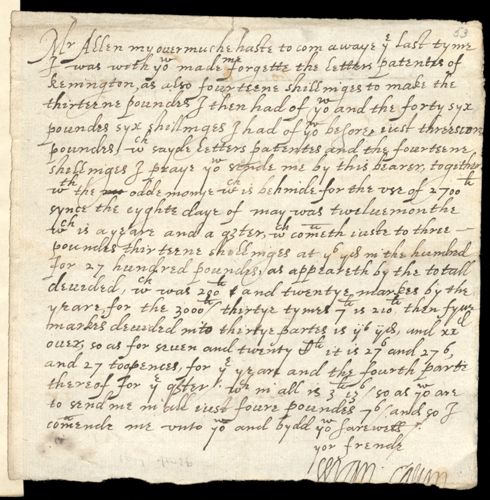 53
Mr Allen my overmuche haste to com awaye ye last tyme
I was with yow made me forgette the letters patentes of
kemington, as also fourteene shillinges to make the
thirteene poundes I then had of yow and the forty syx
poundes syx shillinges I had of yow before iust threescore
poundes / wch sayde letters patentes and the fourteene
shellinges I praye yow sende me by this bearer, together
wth the odde monye wch is behinde for the vse of 2700li
synce the eyghte daye of may was tweluemonthe
wch is a yeare and a qrter, wch cometh iuste to three
poundes thirteene shellinges at in the hundred
for 27 hundred poundes, as appeareth by the totall
deuided, wch was and twentye markes by the
yeare for the 3000li thirtye tymes 7li is 210li, then fyue
markes deuided into thirtye partes is and
ouer, so as for seuen and twenty it is 27s and 27d,
and 27 toopences, for ye yeare and the fourth parte
thereof for ye qrter / wch in all is 3li 13s / so as yow are
to send me in all iust foure poundes 7s / and so I
comende me vnto yow and bydd yow farewell
yor frende